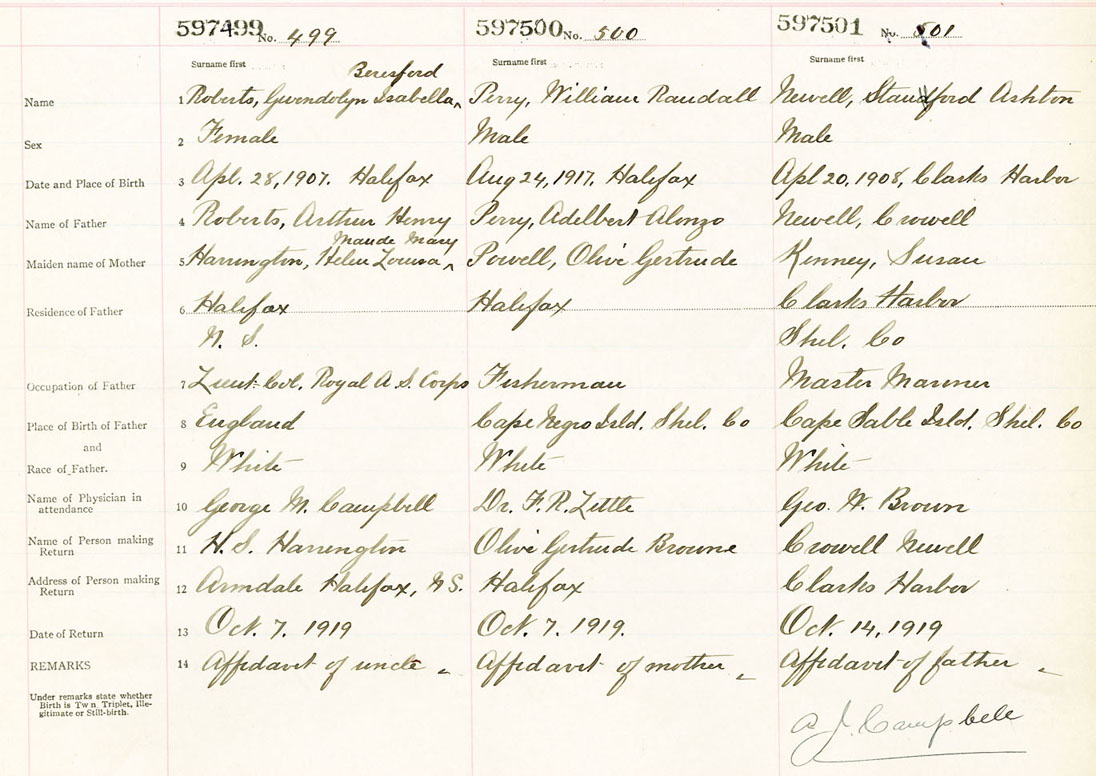 597499 No. 499 597500 No. 500 597501 No. 501
Surname first Surname first Surname first
Beresford
Name 1 Roberts, Gwendolyn Isabella ^ Perry, William Randall Newell, Standford Ashton
Sex 2 Female Male Male
Date and Place of Birth 3 Apl. 28, 1907. Halifax Aug 24, 1917. Halifax Apl 20, 1908, Clarks Harbor
Name of Father 4 Roberts, Arthur Henry Perry, Adelbert Alonzo Newell, Crowell
Maude Mary
Maiden name of Mother 5 Harrington, Helen Louisa ^ Powell, Olive Gertrude Kenney, Susan
Residence of Father 6 Halifax Halifax Clarks Harbor
N. S. Shel. Co
Occupation of Father 7 Lieut. Col. Royal A. S. Corps Fisherman Master Mariner
Place of Birth of Father 8 England Cape Negro Isld. Shel. Co Cape Sable Isld. Shel. Co
and
Race of Father. 9 White White White
Name of Physician in
attendance 10 George M. Campbell Dr. F. R. Little Geo. W. Brown
Name of Person making
Return 11 H. S. Harrington Olive Gertrude Browne Crowell Newell
Address of Person making
Return 12 Armdale Halifax, N S. Halifax Clarks Harbor
Date of Return 13 Oct. 7. 1919 Oct. 7. 1919. Oct. 14, 1919
REMARKS 14 Affidavit of uncle Affidavit of mother Affidavit of father
Under remarks state whether
Birth is Twn Triplet, Ille-
gitimate or Still-birth.
A J. Campbell